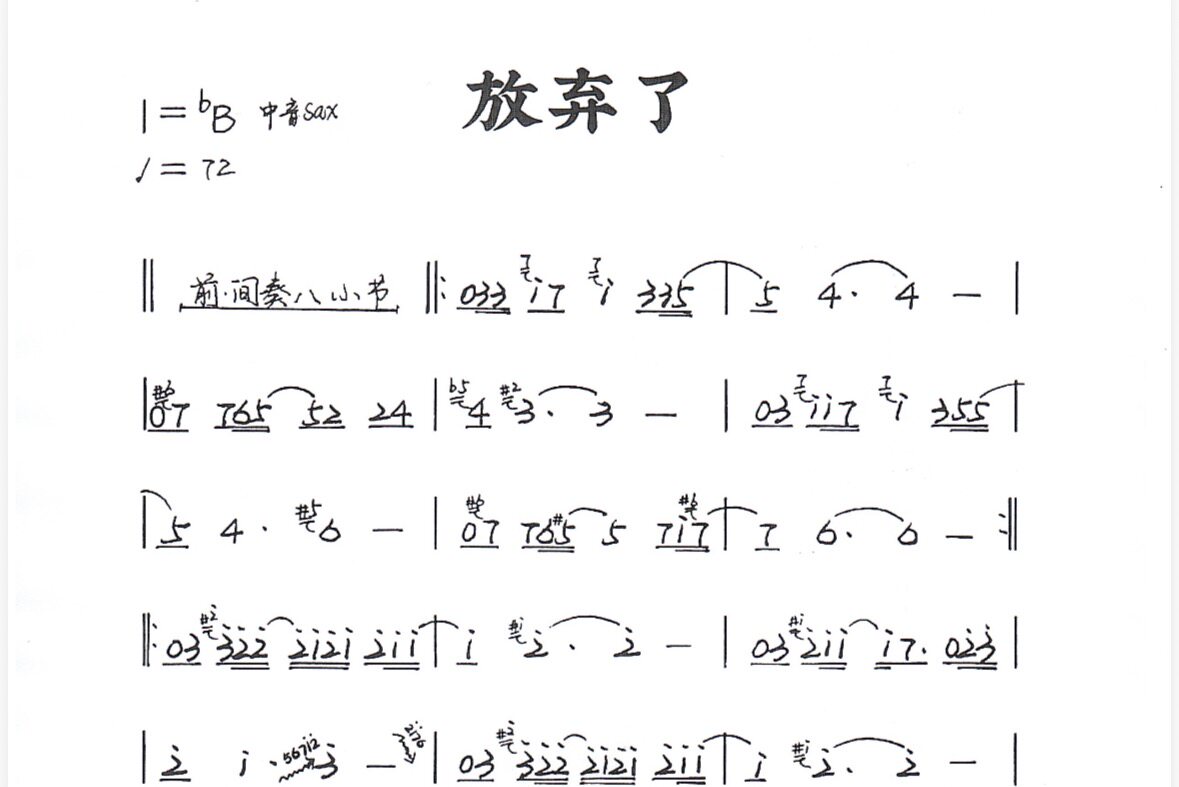 放弃了
1=bB 中音sax
♩=72
‖ 前·间奏八小节 ‖: 033 i7 i 335 | 5 4· 4 — |
| 07 765 52 24 | 4 3· 3 — | 03 ii7 i 355 |
| 5 4· 6 — | 07 76#5 5 7i7 | 7 6· 6 — :‖
‖: 03 322 2i2i 2ii | i 2· 2 — | 03 2ii i7· 023 |
| 2 i· 567i2 3 — | 03 322 2i2i 2ii | i 2· 2 — |